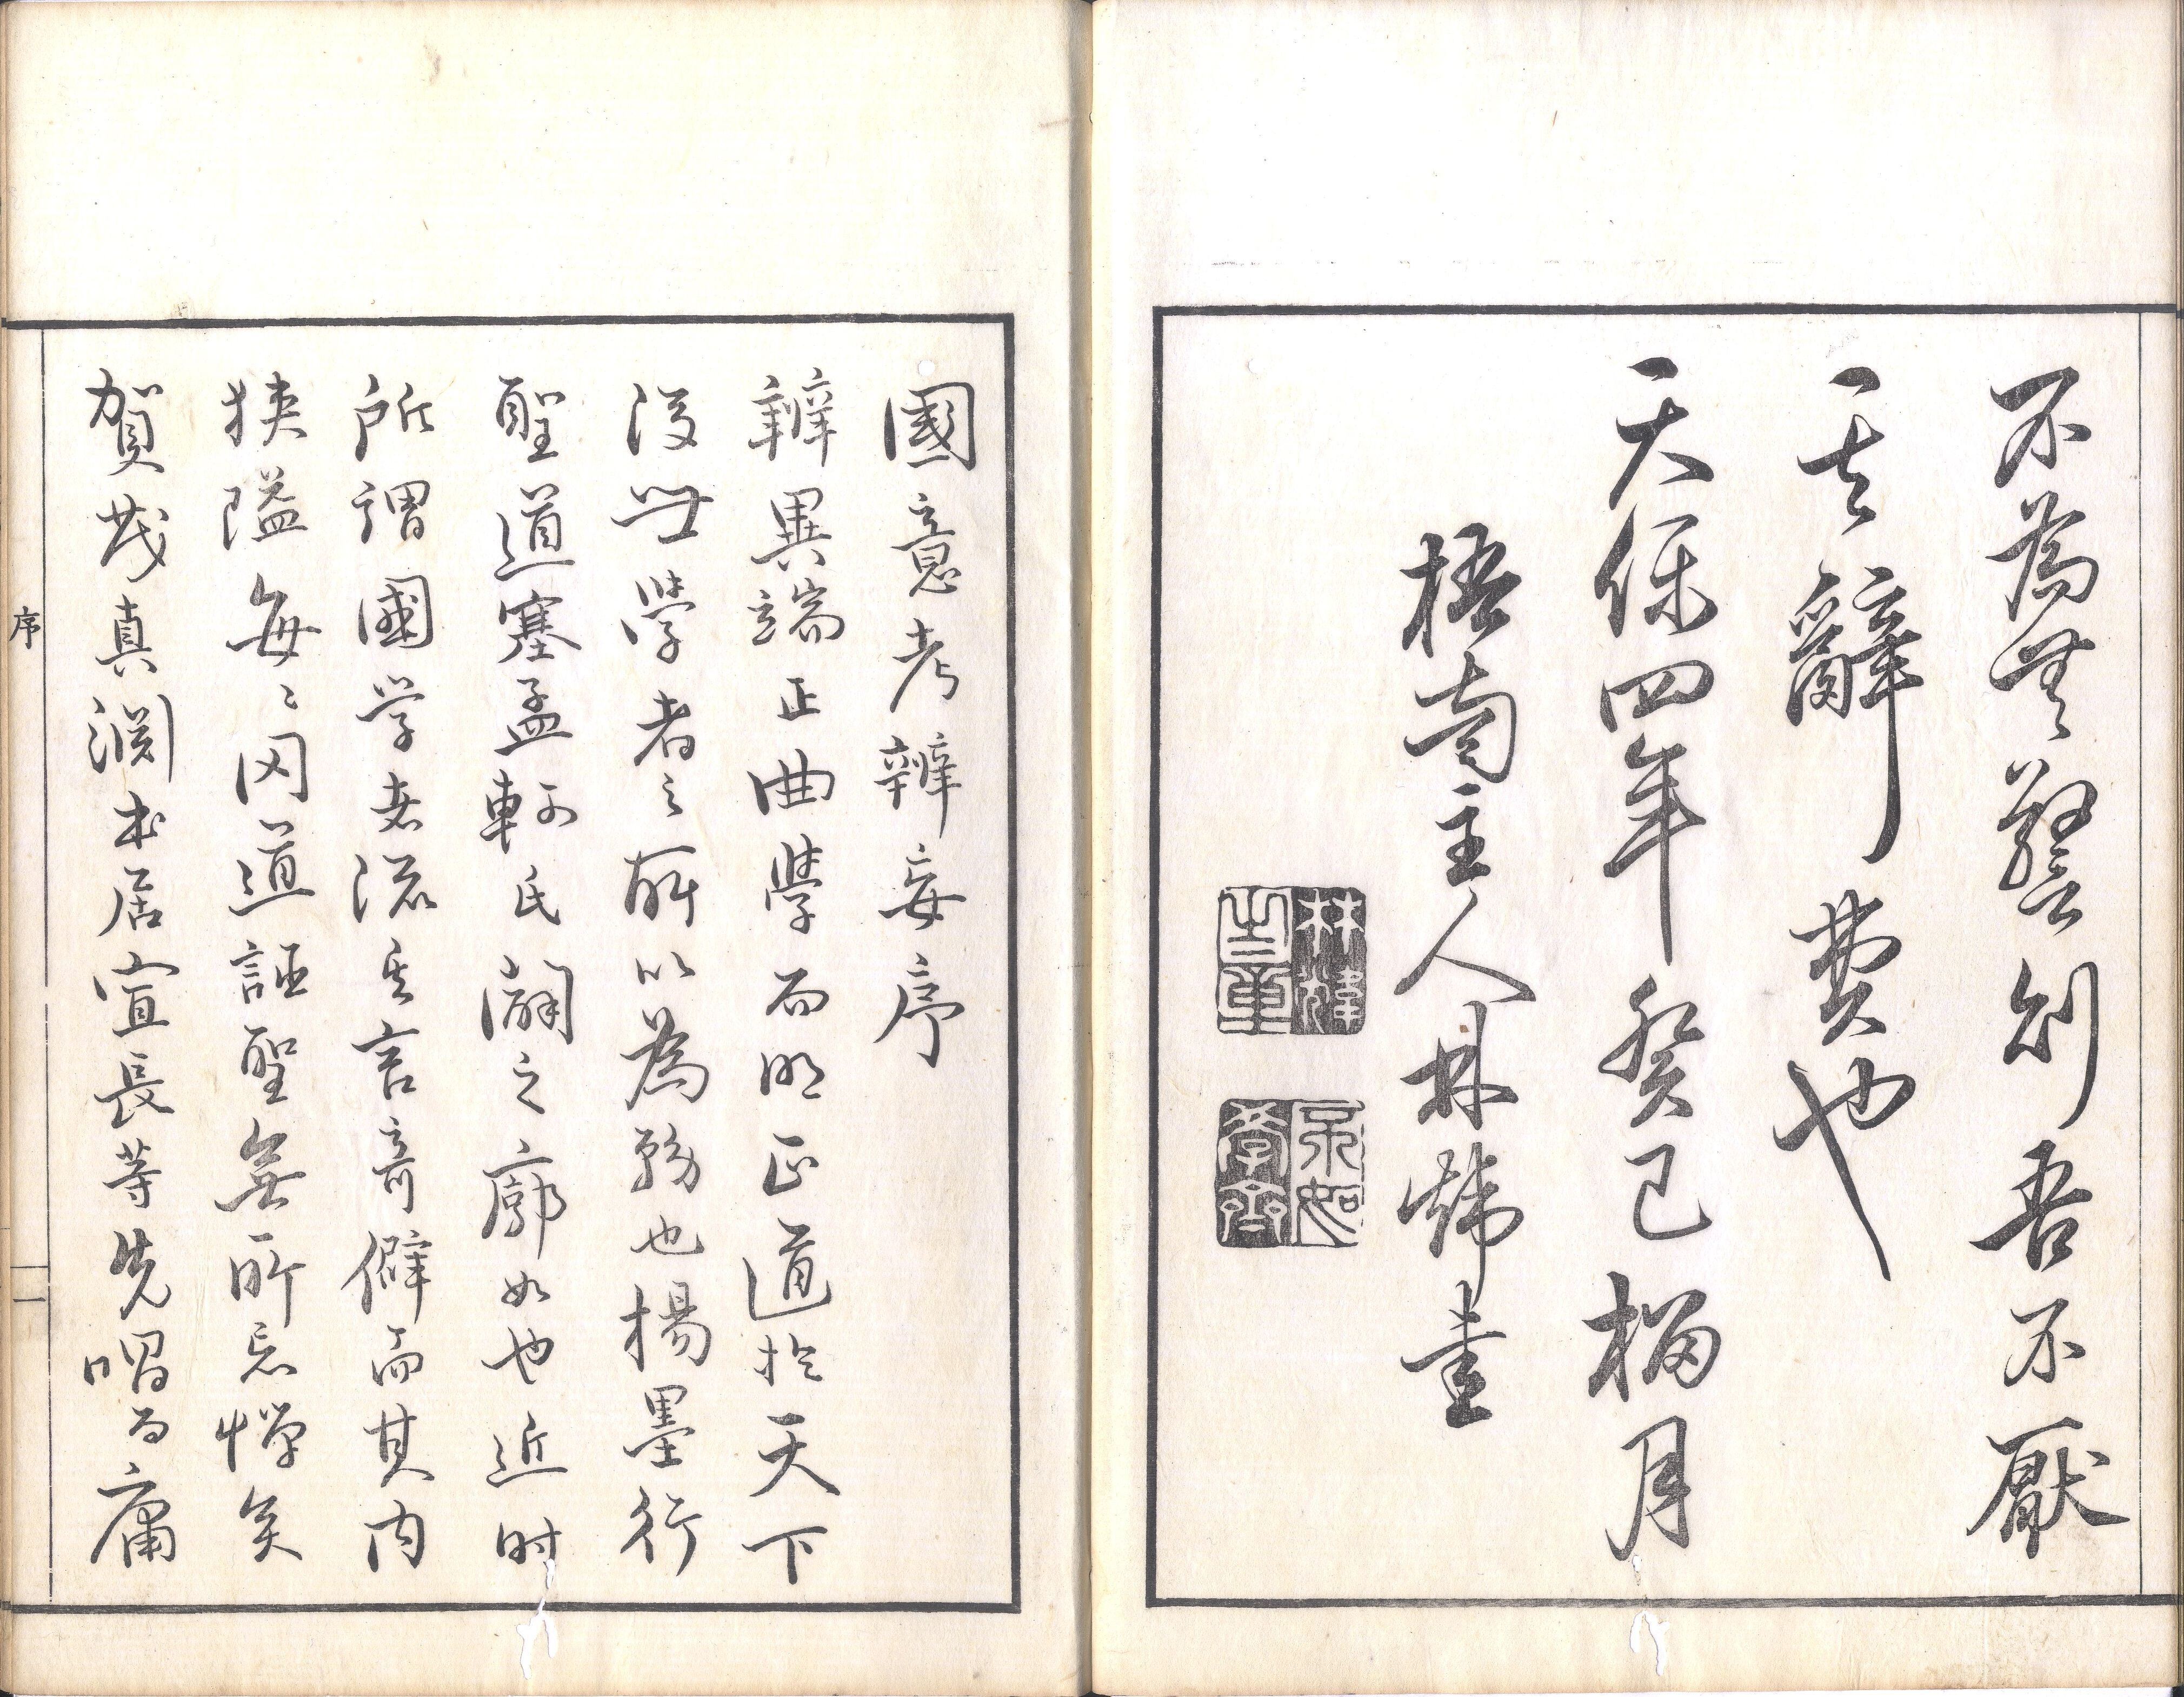 不為無警創吾不厭
其辭費也
天保四年癸巳榴月
梧南主人林煒書
林煒
不如
學齋
國意考辨妄序
辨異端正曲學而明正道於天下
後世學者之所以為務也楊墨行
聖道塞孟軻氏闢之廓如也近时
所謂國学者流其言奇僻而其内
狭隘每々罔道誣聖無所忌憚矣
賀茂真淵本居宣長等先唱而庸
序
一